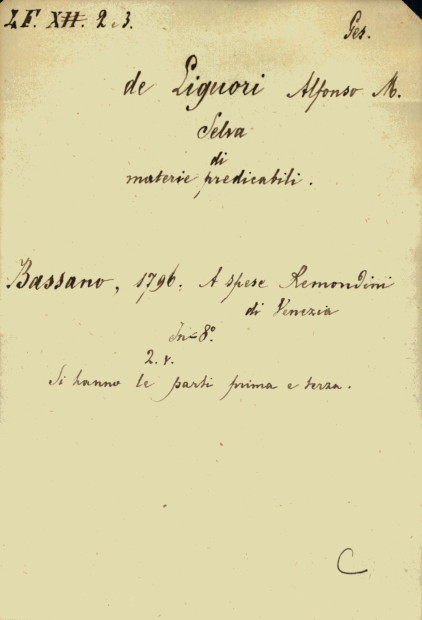 LF. XII. 2.3. Ges.
de Liguori Alfonso M.
Selva
di
materie predicabili.
Bassano, 1796. A spese Remondini
di Venezia
In-8º
2. v.
Si hanno le parti prima e terza.
C